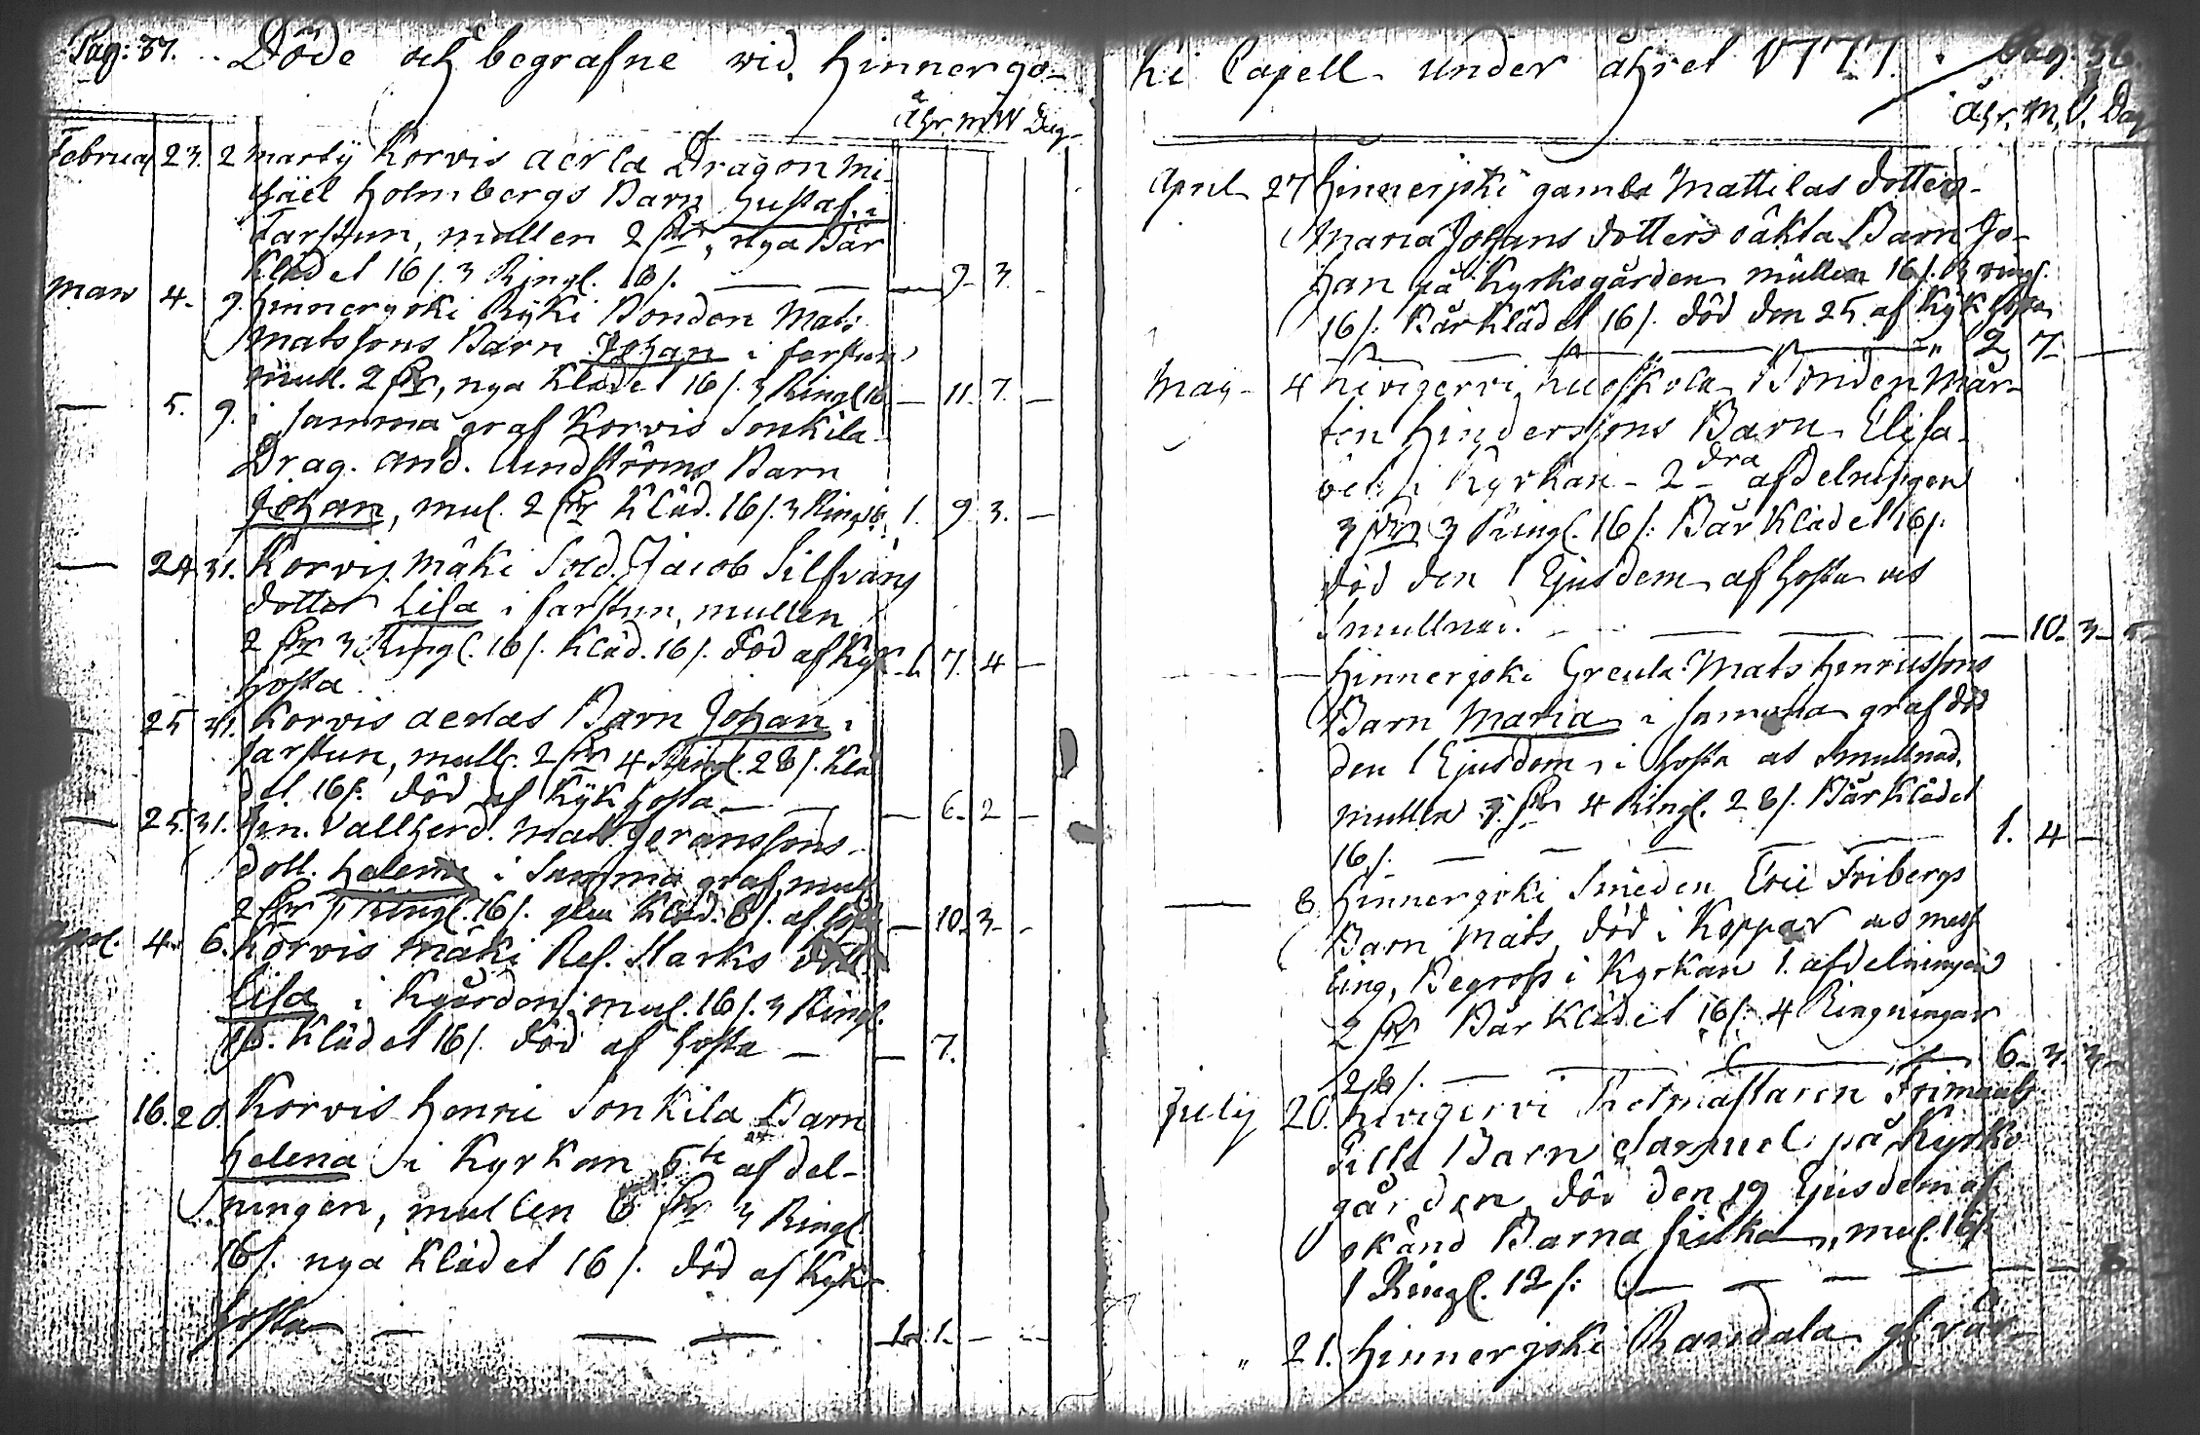 Pag: 37. Döde och begrafne wid Hinnergo-
Åhr. M. W. Dag.
Februa 23. 2 Martij Korvis aerla Dragon Mi-
chäel Holmbergs Barn Gustaf i
Farstun, mullen 2 nya Bår
Klädet 16 s. 3 Ringl. 16 s. — — — 9. 3. -
Mars 4. 9. Hinnergoki Ryki Bonden Mats
Matssons Barn Johan i farstun
mull. 2 nya Klädet 16 s. 3 Ringl 16 — 11. 7. —
— 5. 9. i samma graf Korvis Sonkila
Drag. And. Lundströms Barn
Johan, mul. 2 Kläd. 16 s. 3 Ringl 16 1. 9 3. —
— 24 31. Korvis Mäki Sold. Jacob Silfvans
dotter Lisa i farstun, mullen
2 3 Ringl. 16 s. Kläd. 16 s. död af Kyk 1. 7. 4 —
hosta
25 31. Korvis aerlas Barn Johan i
farstun, mull. 2 4 Ringl. 28 s. Klä
det 16 s. död af Kyk hosta — — — 6. 2 —
— 25. 31. Hin. Vallherd. Mats Göranssons
dott. Helena i samma graf, mull
2 3 Ringl. 16 s. Kläd. 8 s. af hosta — 10. 3 -
4. 6. Korvis Mäki Ref. Starks dott.
Lisa i Kgården, mul. 16 s. 3 Ringl.
16. Klädet 16 s. död af hosta — — 7.
— 16. 20. Korvis Henric Sonkila Barn
Helena i Kyrkan 5te afdel-
ningen, mullen 6 3 Ringl.
16 s. nya Klädet 16 s. död af Kyk
hosta — — — 1. 1. — —
ki Capell under åhret 1777. Pag. 38.
Åhr. M. V. Dag
April 27 Hinnerjoki gamla Mattilas dotter
Maria Johans dotters oäkta Barn Jo-
han på Kyrkogården mullen 16 s. 3 ringl.
16 s. Bårklädet 16 s. död den 25. af Kyk hosta
— — — — 2 7 —
Maij - 4 Mår-
ten Hinderssons Barn Elisa-
bet i Kyrkan - 2 dra afdelningen
3 3 Ringl. 16 s. Bår Klädet 16 s.
död den 1 Ejusdem af hosta och
smullnad. — — — — 10. 3 -
— Hinnerjoki Greula Mats Henricssons
Barn Maria i samma graf död
den 1 Ejusdem i hosta och smullnad.
mullen 4 Ringl. 28 s. Bår Klädet
16 s. — — — — — 1. 4 —
— 8. Hinnerjoki Smeden Eric Fribergs
Barn Mats, död i Koppar och mess
ling, Begrofs i Kyrkan 1. afdelningen
2 Bår Klädet 16 s. 4 Ringningar
28 s. — — — 6. 3. 3
July 20. Barn Samuel på Kyrko
gården död den 19 Ejusdem af
okänd Barna siuka, mul. 16 s.
1 Ringl. 12 s. — — — —
" 21. Hinnerjoki Raudala